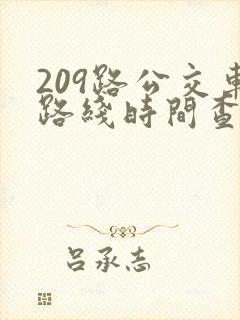 209路公交車
路綫時間查
吕承志